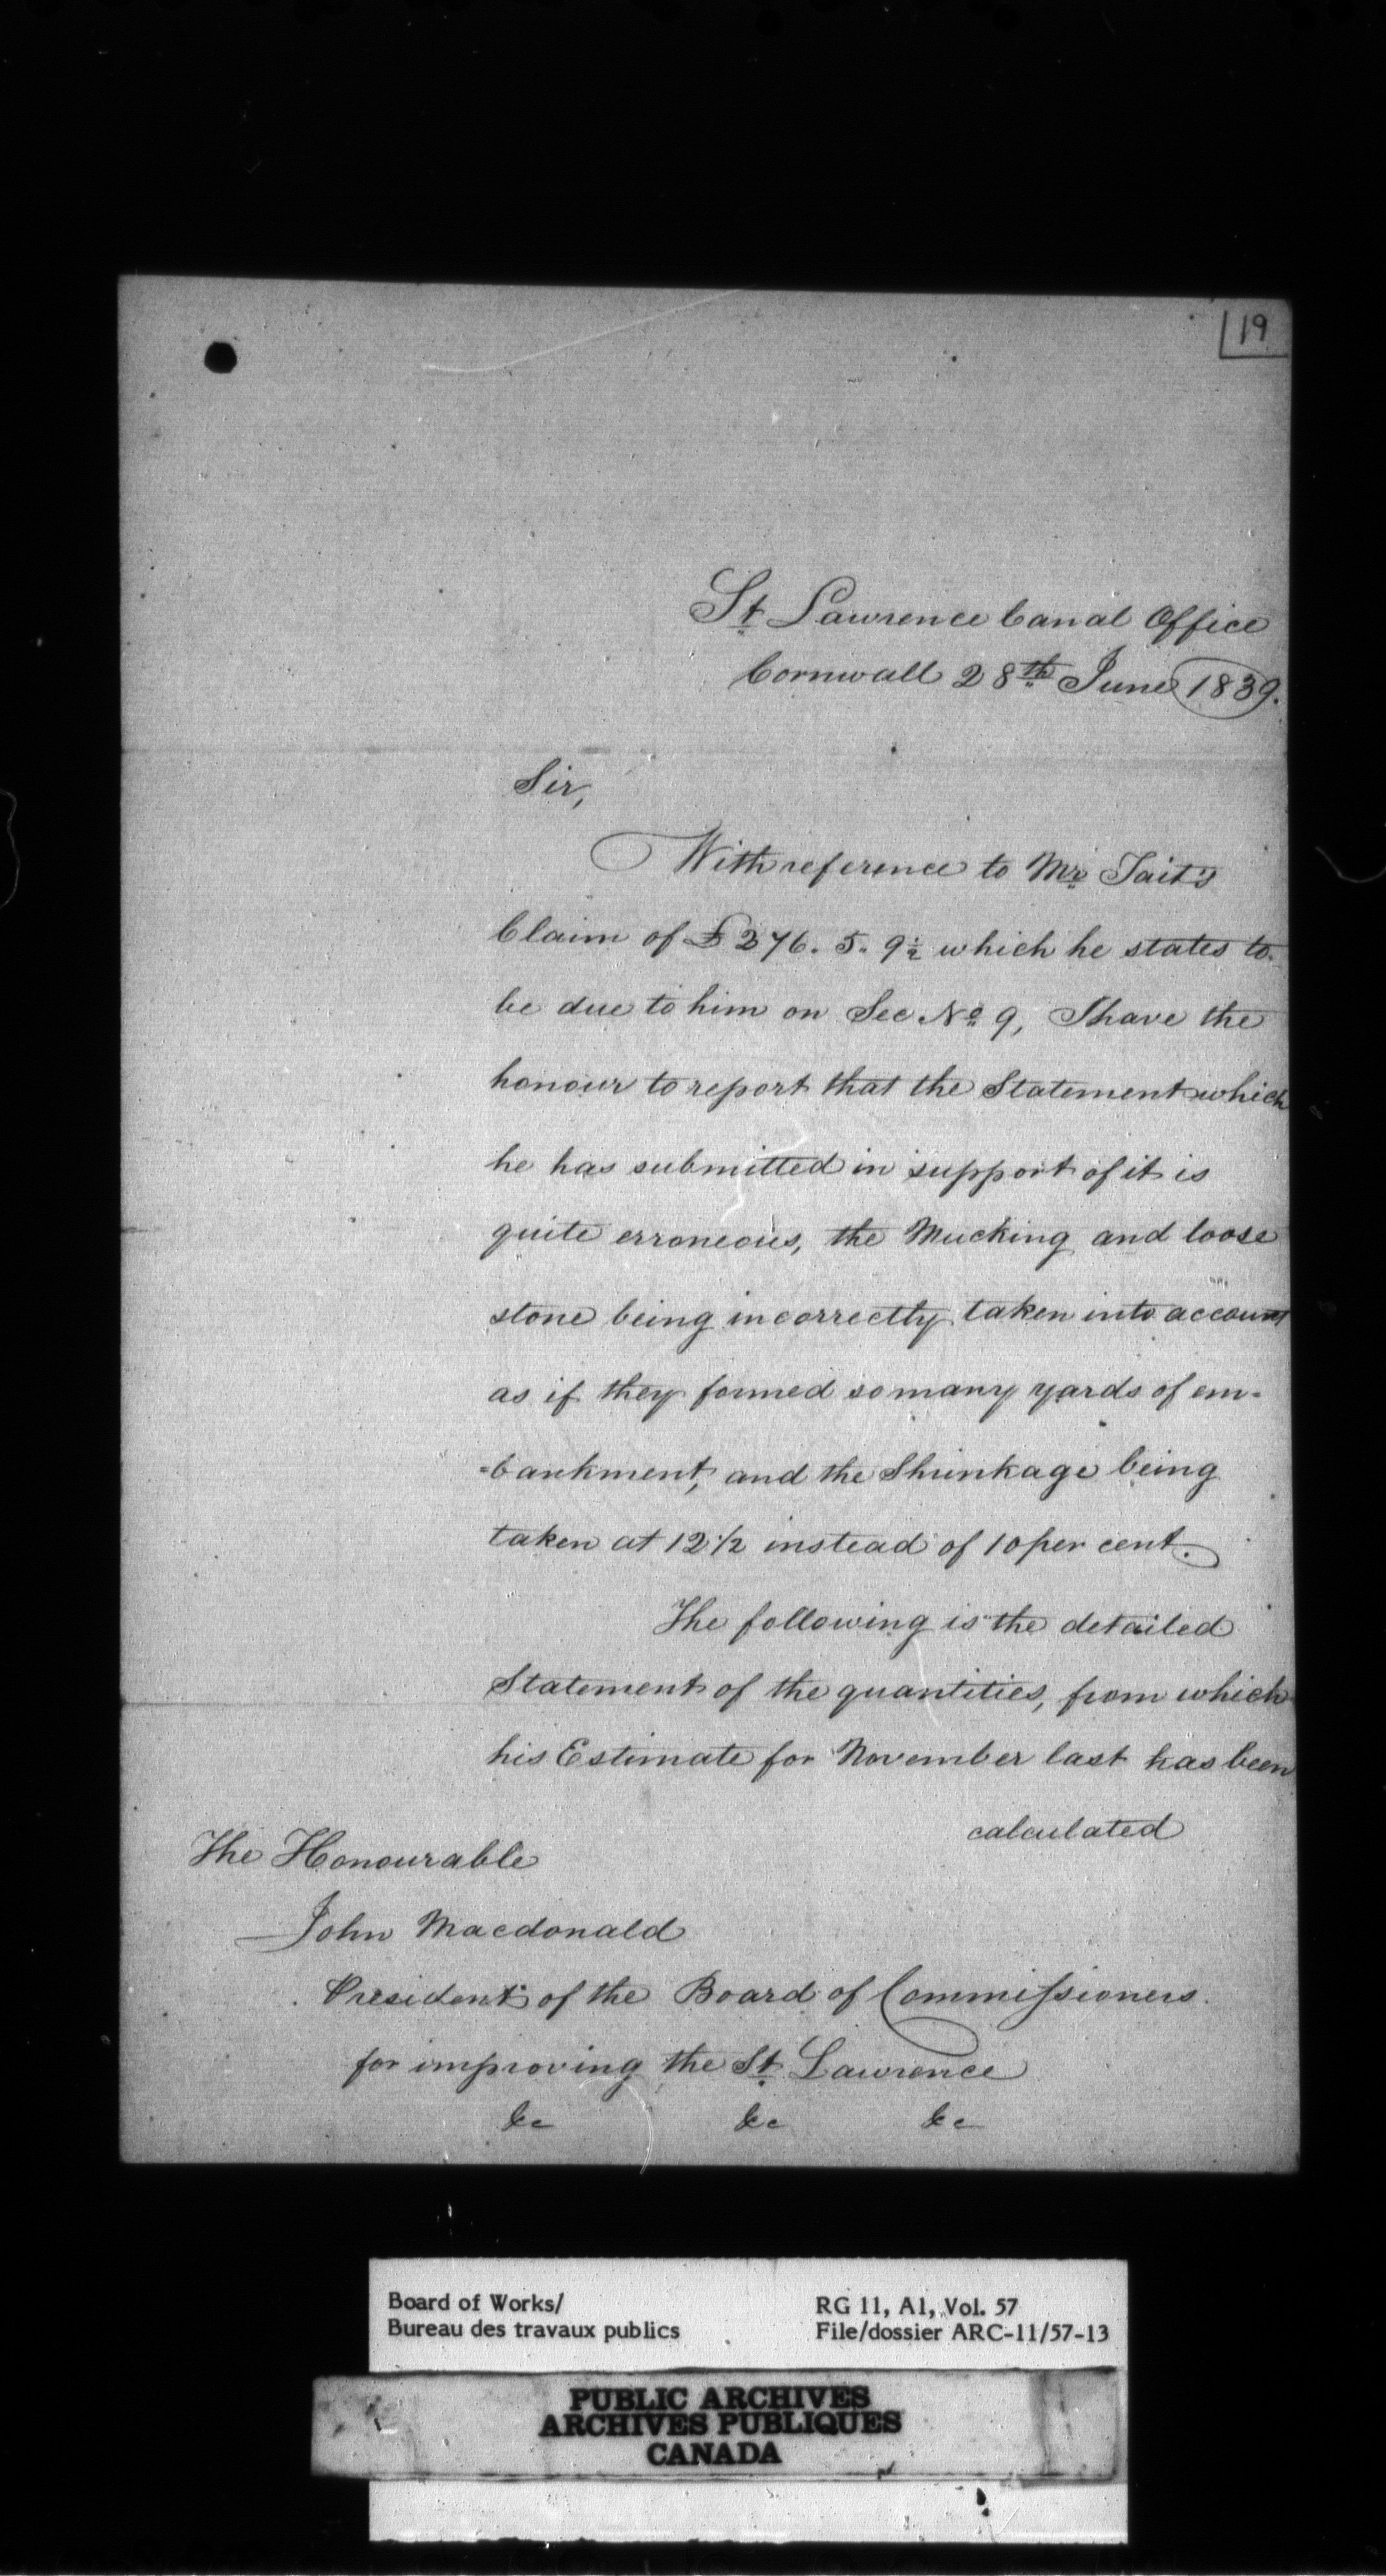 19
St Lawrence Canal Office
Cornwall 28th June 1839.
Sir,
With reference to Mr Tait's
Claim of £276. 5. 9½ which he states to
be due to him on Sec No 9, I have the
honour to report that the Statement which
he has submitted in support of it is
quite erroneous, the Mucking and loose
stone being incorrectly taken into account
as if they formed so many yards of em-
-bankment, and the Shrinkage being
taken at 12½ instead of 10 per cent.
The following is the detailed
Statement of the quantities, from which
his Estimate for November last has been
calculated
The Honourable
John Macdonald
President of the Board of Commissioners
for improving the St Lawrence
&c &c &c
Board of Works/
Bureau des travaux publics
RG 11, A1, Vol. 57
File/dossier ARC-11/57-13
PUBLIC ARCHIVES
ARCHIVES PUBLIQUES
CANADA